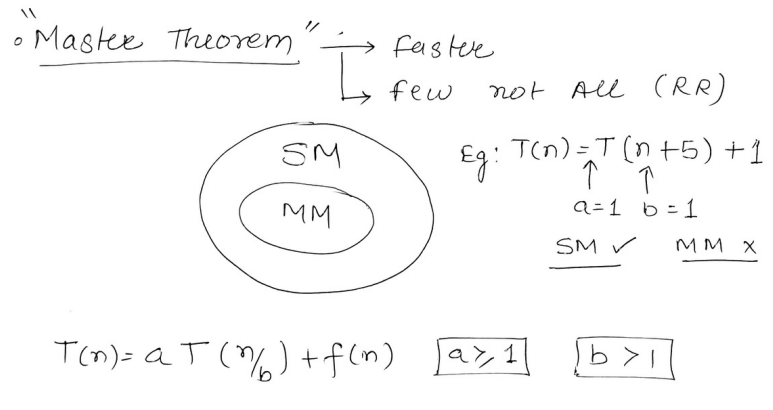 • "Master Theorem" → faster
→ few not All (RR)
SM
MM
Eg: T(n) = T(n+5) + 1
a=1 b=1
SM ✓ MM x
T(n) = a T(n/b) + f(n) a ≥ 1 b > 1